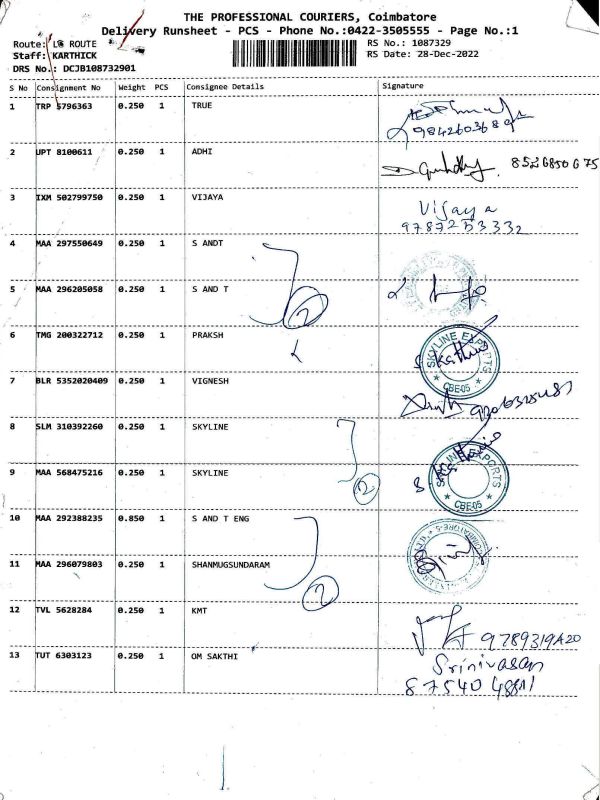 THE PROFESSIONAL COURIERS, Coimbatore
Delivery Runsheet - PCS - Phone No.:0422-3505555 - Page No.:1
Route: L6 ROUTE
RS No.: 1087329
Staff: KARTHICK
RS Date: 28-Dec-2022
DRS No.: DCJB108732901
S No Consignment No Weight PCS Consignee Details Signature
1 TRP 5796363 0.250 1 TRUE
9842603689
2 UPT 8100611 0.250 1 ADHI 8526850675
3 IXM 502799750 0.250 1 VIJAYA Vijaya
4 MAA 297550649 0.250 1 S ANDT
5 MAA 296205058 0.250 1 S AND T
2
6 TMG 200322712 0.250 1 PRAKSH SKYLINE EXPORTS CBE-05
7 BLR 5352020409 0.250 1 VIGNESH
8 SLM 310392260 0.250 1 SKYLINE
9 MAA 568475216 0.250 1 SKYLINE SKYLINE EXPORTS CBE-05
2
10 MAA 292388235 0.850 1 S AND T ENG
11 MAA 296079803 0.250 1 SHANMUGSUNDARAM
2
12 TVL 5628284 0.250 1 KMT
13 TUT 6303123 0.250 1 OM SAKTHI Srinivasan